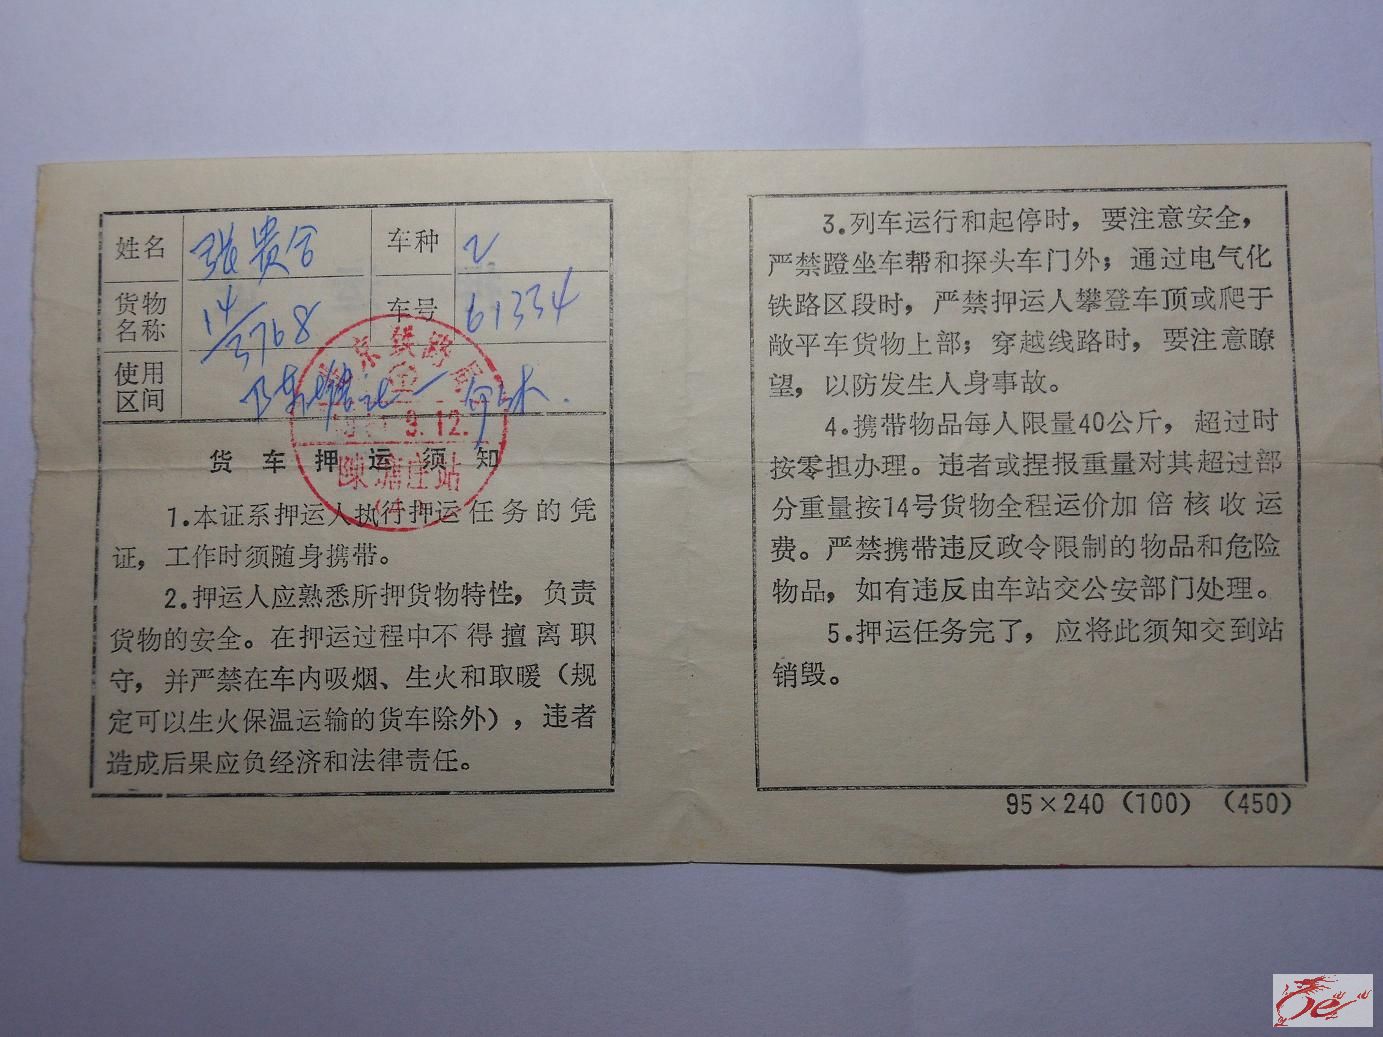 姓名 张贵合 车种
货物名称 14/3768 车号 61334
使用区间
京铁路局
3.12.
陳塘庄站
货车押运须知
1.本证系押运人执行押运任务的凭
证，工作时须随身携带。
2.押运人应熟悉所押货物特性，负责
货物的安全。在押运过程中不得擅离职
守，并严禁在车内吸烟、生火和取暖（规
定可以生火保温运输的货车除外），违者
造成后果应负经济和法律责任。
3.列车运行和起停时，要注意安全，
严禁蹬坐车帮和探头车门外；通过电气化
铁路区段时，严禁押运人攀登车顶或爬于
敞平车货物上部；穿越线路时，要注意瞭
望，以防发生人身事故。
4.携带物品每人限量40公斤，超过时
按零担办理。违者或捏报重量对其超过部
分重量按14号货物全程运价加倍核收运
费。严禁携带违反政令限制的物品和危险
物品，如有违反由车站交公安部门处理。
5.押运任务完了，应将此须知交到站
销毁。
95×240（100）（450）